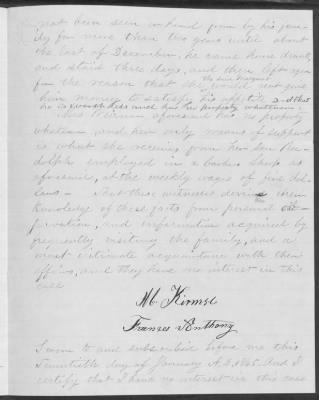 not been seen or heard from by his fam-
ily for more than two years until about
the last of December, he came home drunk,
and staid three days, and then left again
for the reason that she would not give
him money to satisfy his appetite and that
he is worthless and has no property whatever.
Mrs aforesaid has no property
whatever, and her only means of support
is what she receives from her son Ru-
dolph employed in a barber shop as
aforesaid, at the weekly wages of five dol-
lars — That these witnesses derive their
knowledge of these facts from personal ob-
servation, and information acquired by
frequently visiting the family, and a
most intimate acquaintance with their
affairs, and they have no interest in this
case
M. Kirmse
Frances Anthony
Sworn to and subscribed before me this
Twentieth day of January A.D. 1865. And I
certify that I have no interest in this case